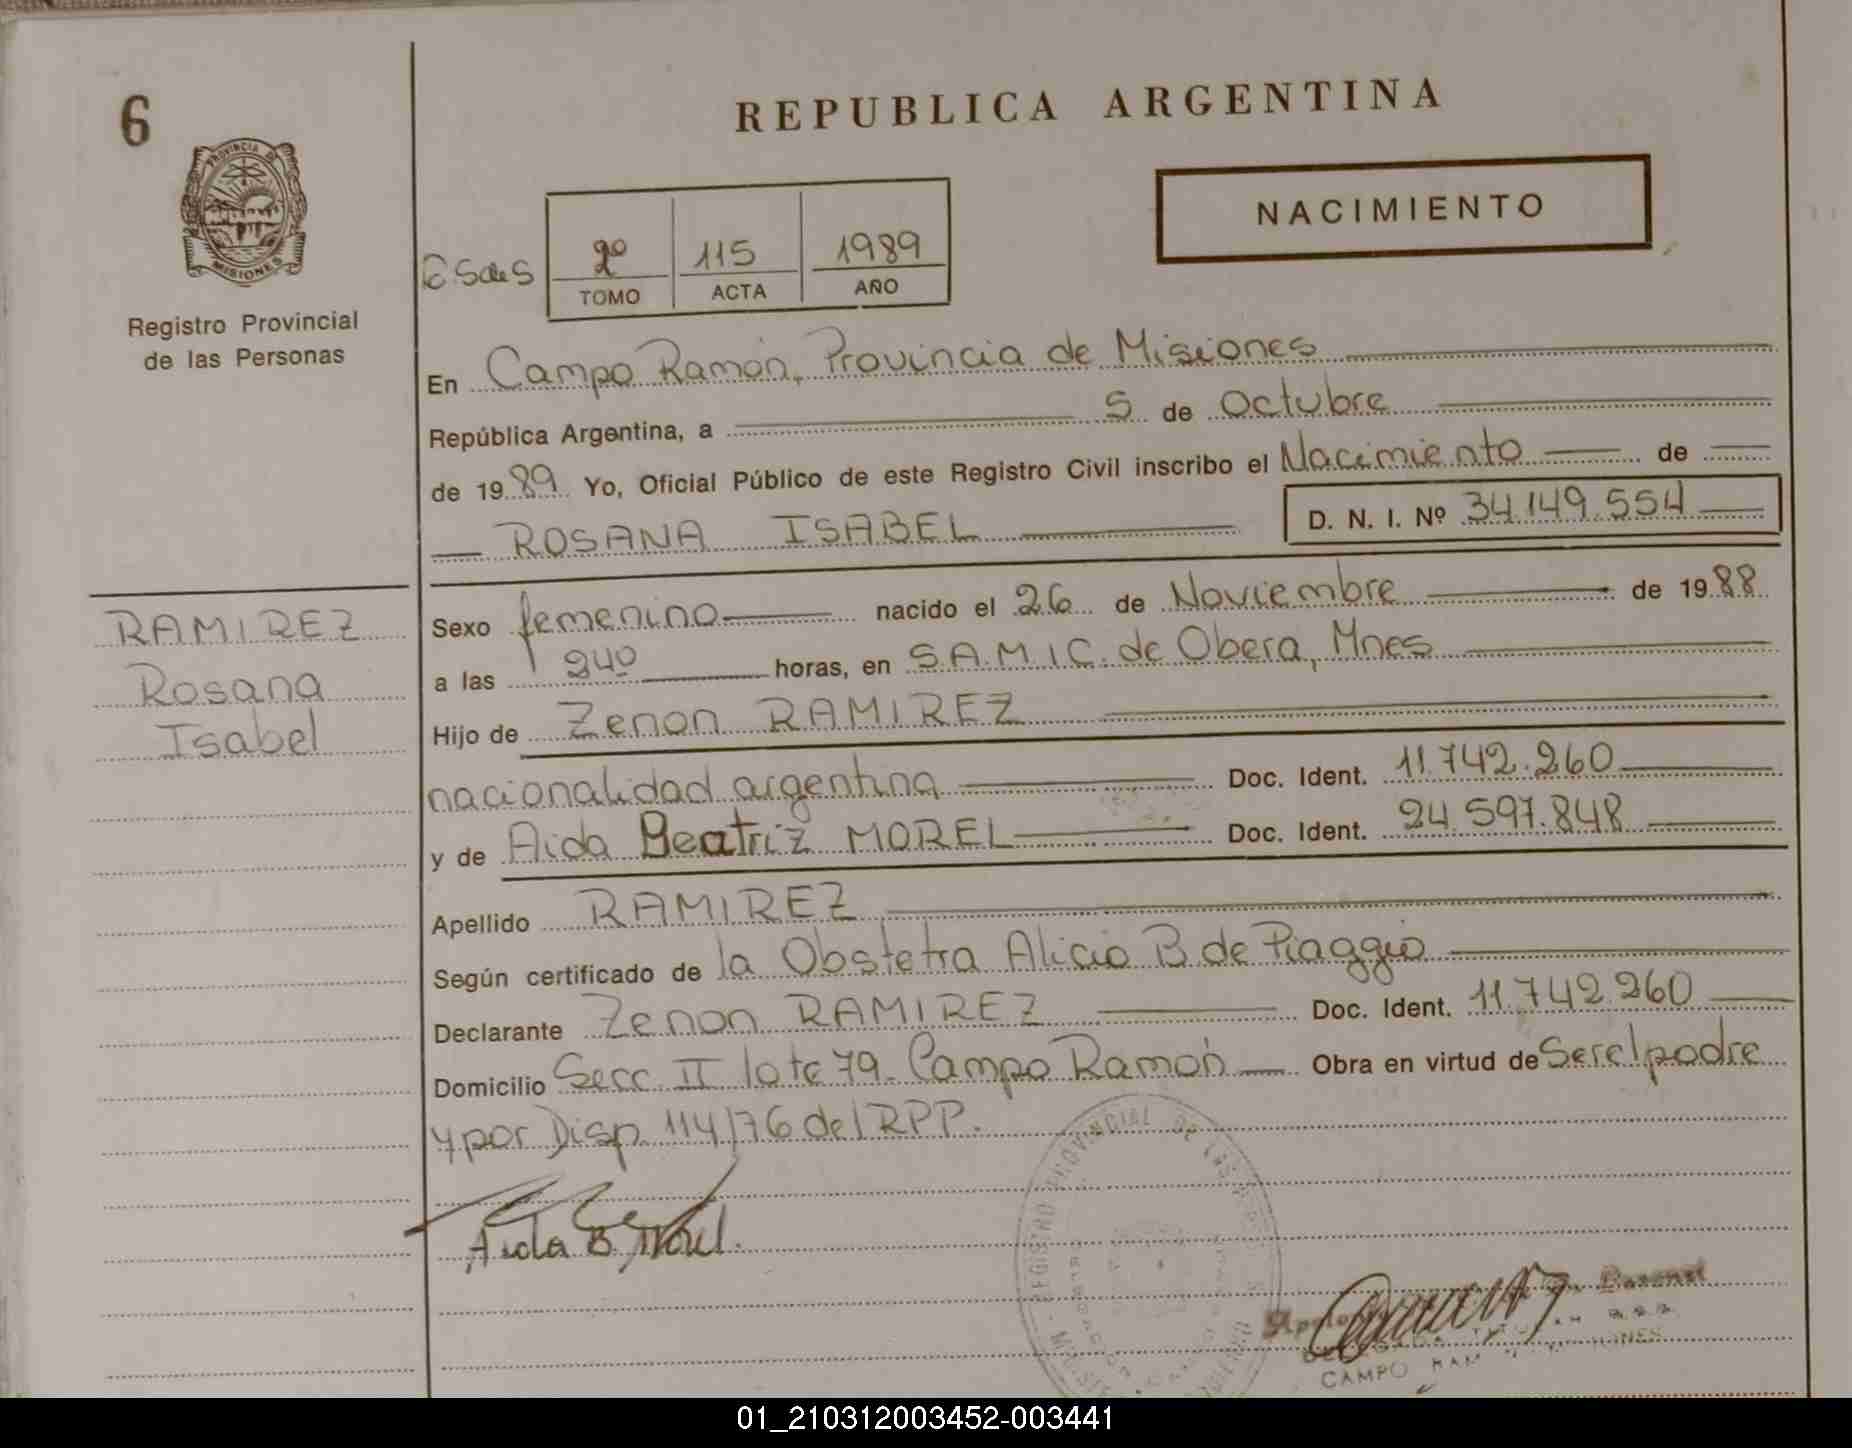 6
REPUBLICA ARGENTINA
PROVINCIA DE
MISIONES
Registro Provincial
de las Personas
NACIMIENTO
2º 115 1989
TOMO ACTA AÑO
En Campo Ramón, Provincia de Misiones
República Argentina, a 5 de Octubre
de 1989 Yo, Oficial Público de este Registro Civil inscribo el Nacimiento de
ROSANA ISABEL D. N. I. Nº 34.149.554
RAMIREZ
Rosana
Isabel
Sexo femenino nacido el 26 de Noviembre de 1988
a las 24º horas, en S.A.M.I.C. de Obera, Mnes
Hijo de Zenon RAMIREZ
nacionalidad argentina Doc. Ident. 11.742.260
y de Aida Beatriz MOREL Doc. Ident. 24.597.848
Apellido RAMIREZ
Según certificado de la Obstetra Alicia B de Piaggio
Declarante Zenon RAMIREZ Doc. Ident. 11.742.260
Domicilio Secc. II lote 79. Campo Ramón Obra en virtud de Ser el padre
y por Disp. 114/76 del RPP.
Aida B. Morel.
REGISTRO PROVINCIAL DE LAS
CAMPO RAM
01_210312003452-003441